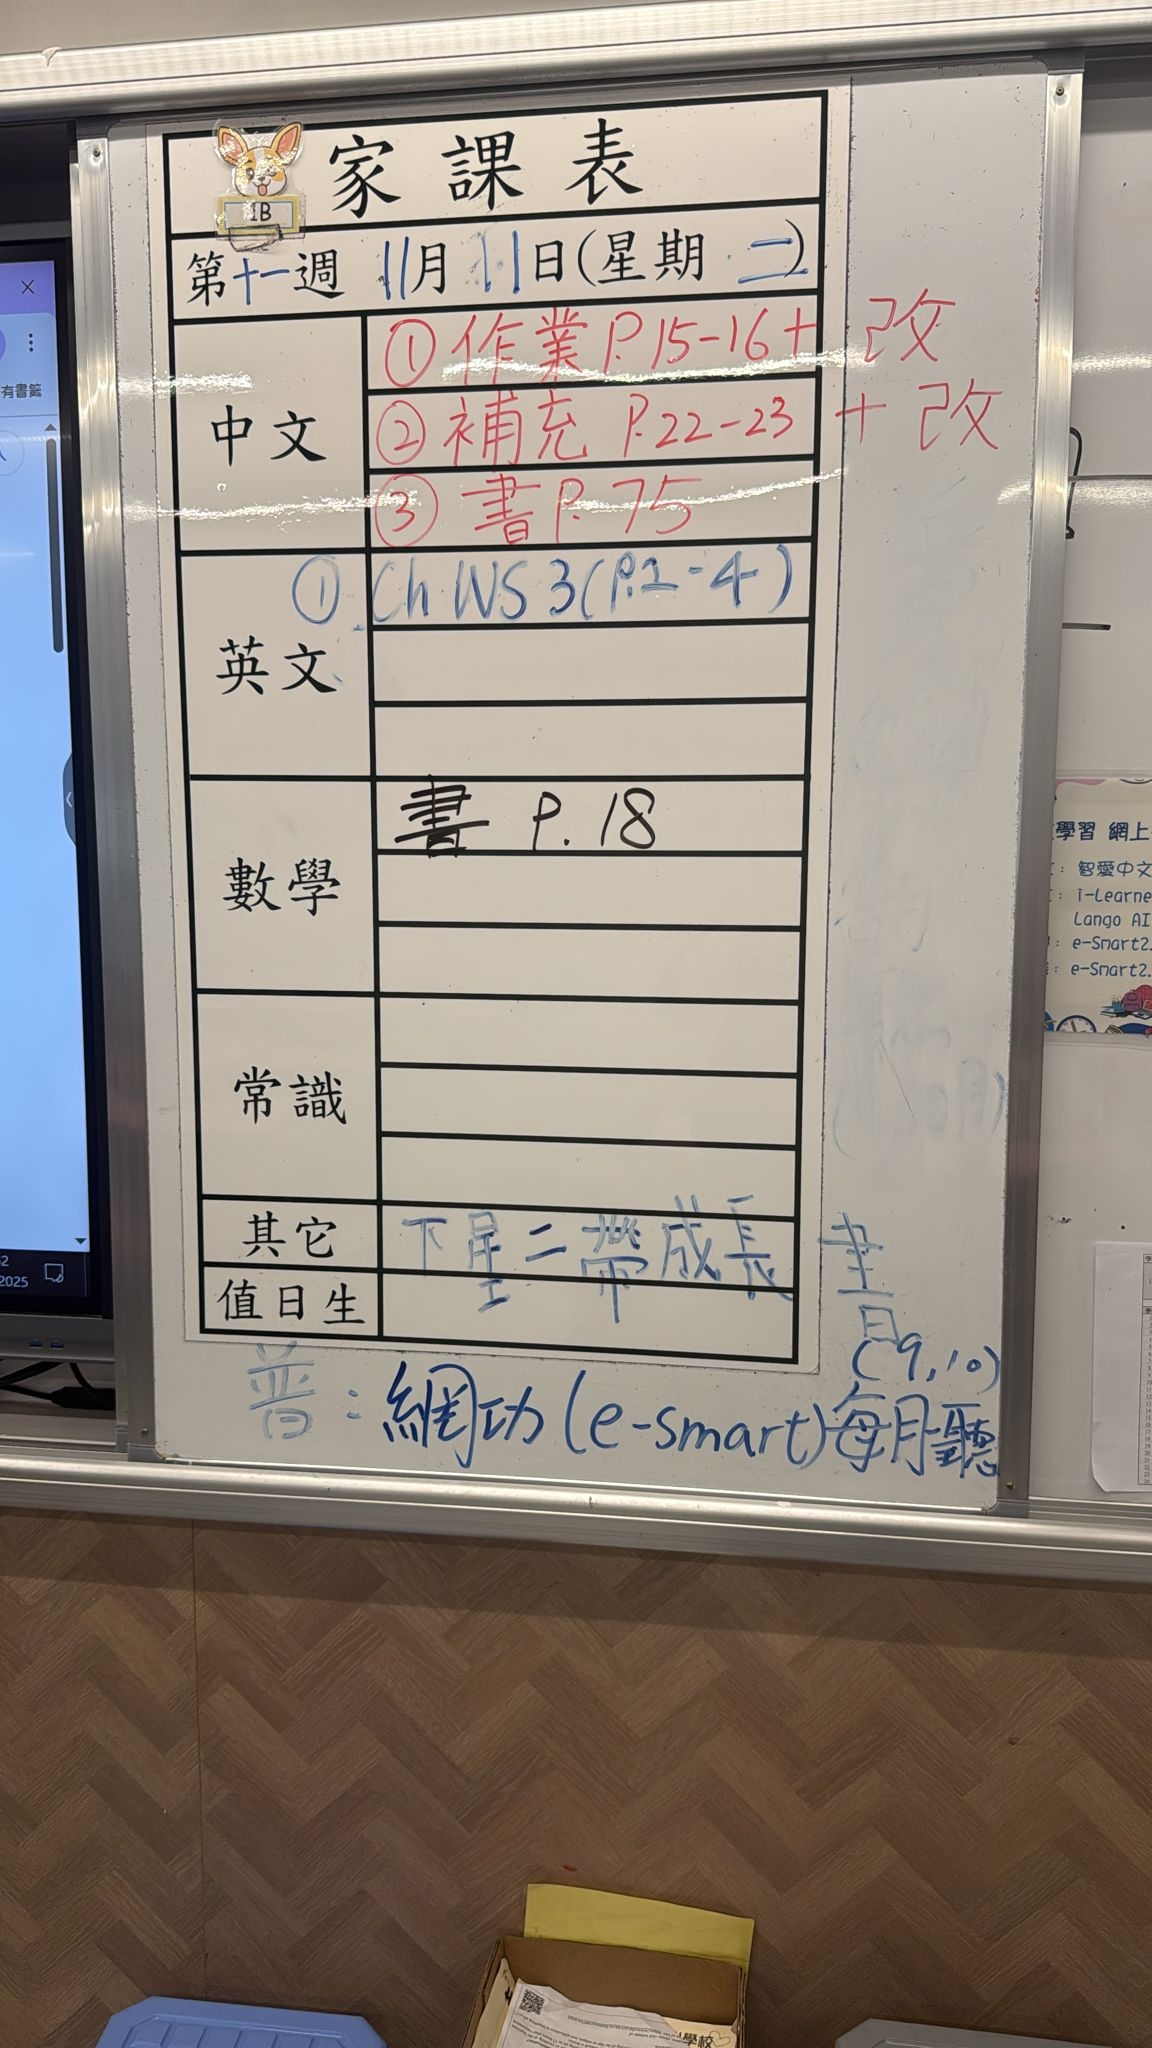 家課表
1B
第十一週 11月11日(星期 二)
中文
① 作業 P.15-16 + 改
② 補充 P.22-23 + 改
③ 書 P.75
英文
① Ch WS 3 (P.1-4)
數學
書 P.18
常識
其它
下星二帶成長書
值日生
(9,10)
普：網功(e-smart)每月聽
有書籤
2025
學習 網上
智愛中文
i-Learne
Lango AI
e-Smart2.
e-Smart2.
學校